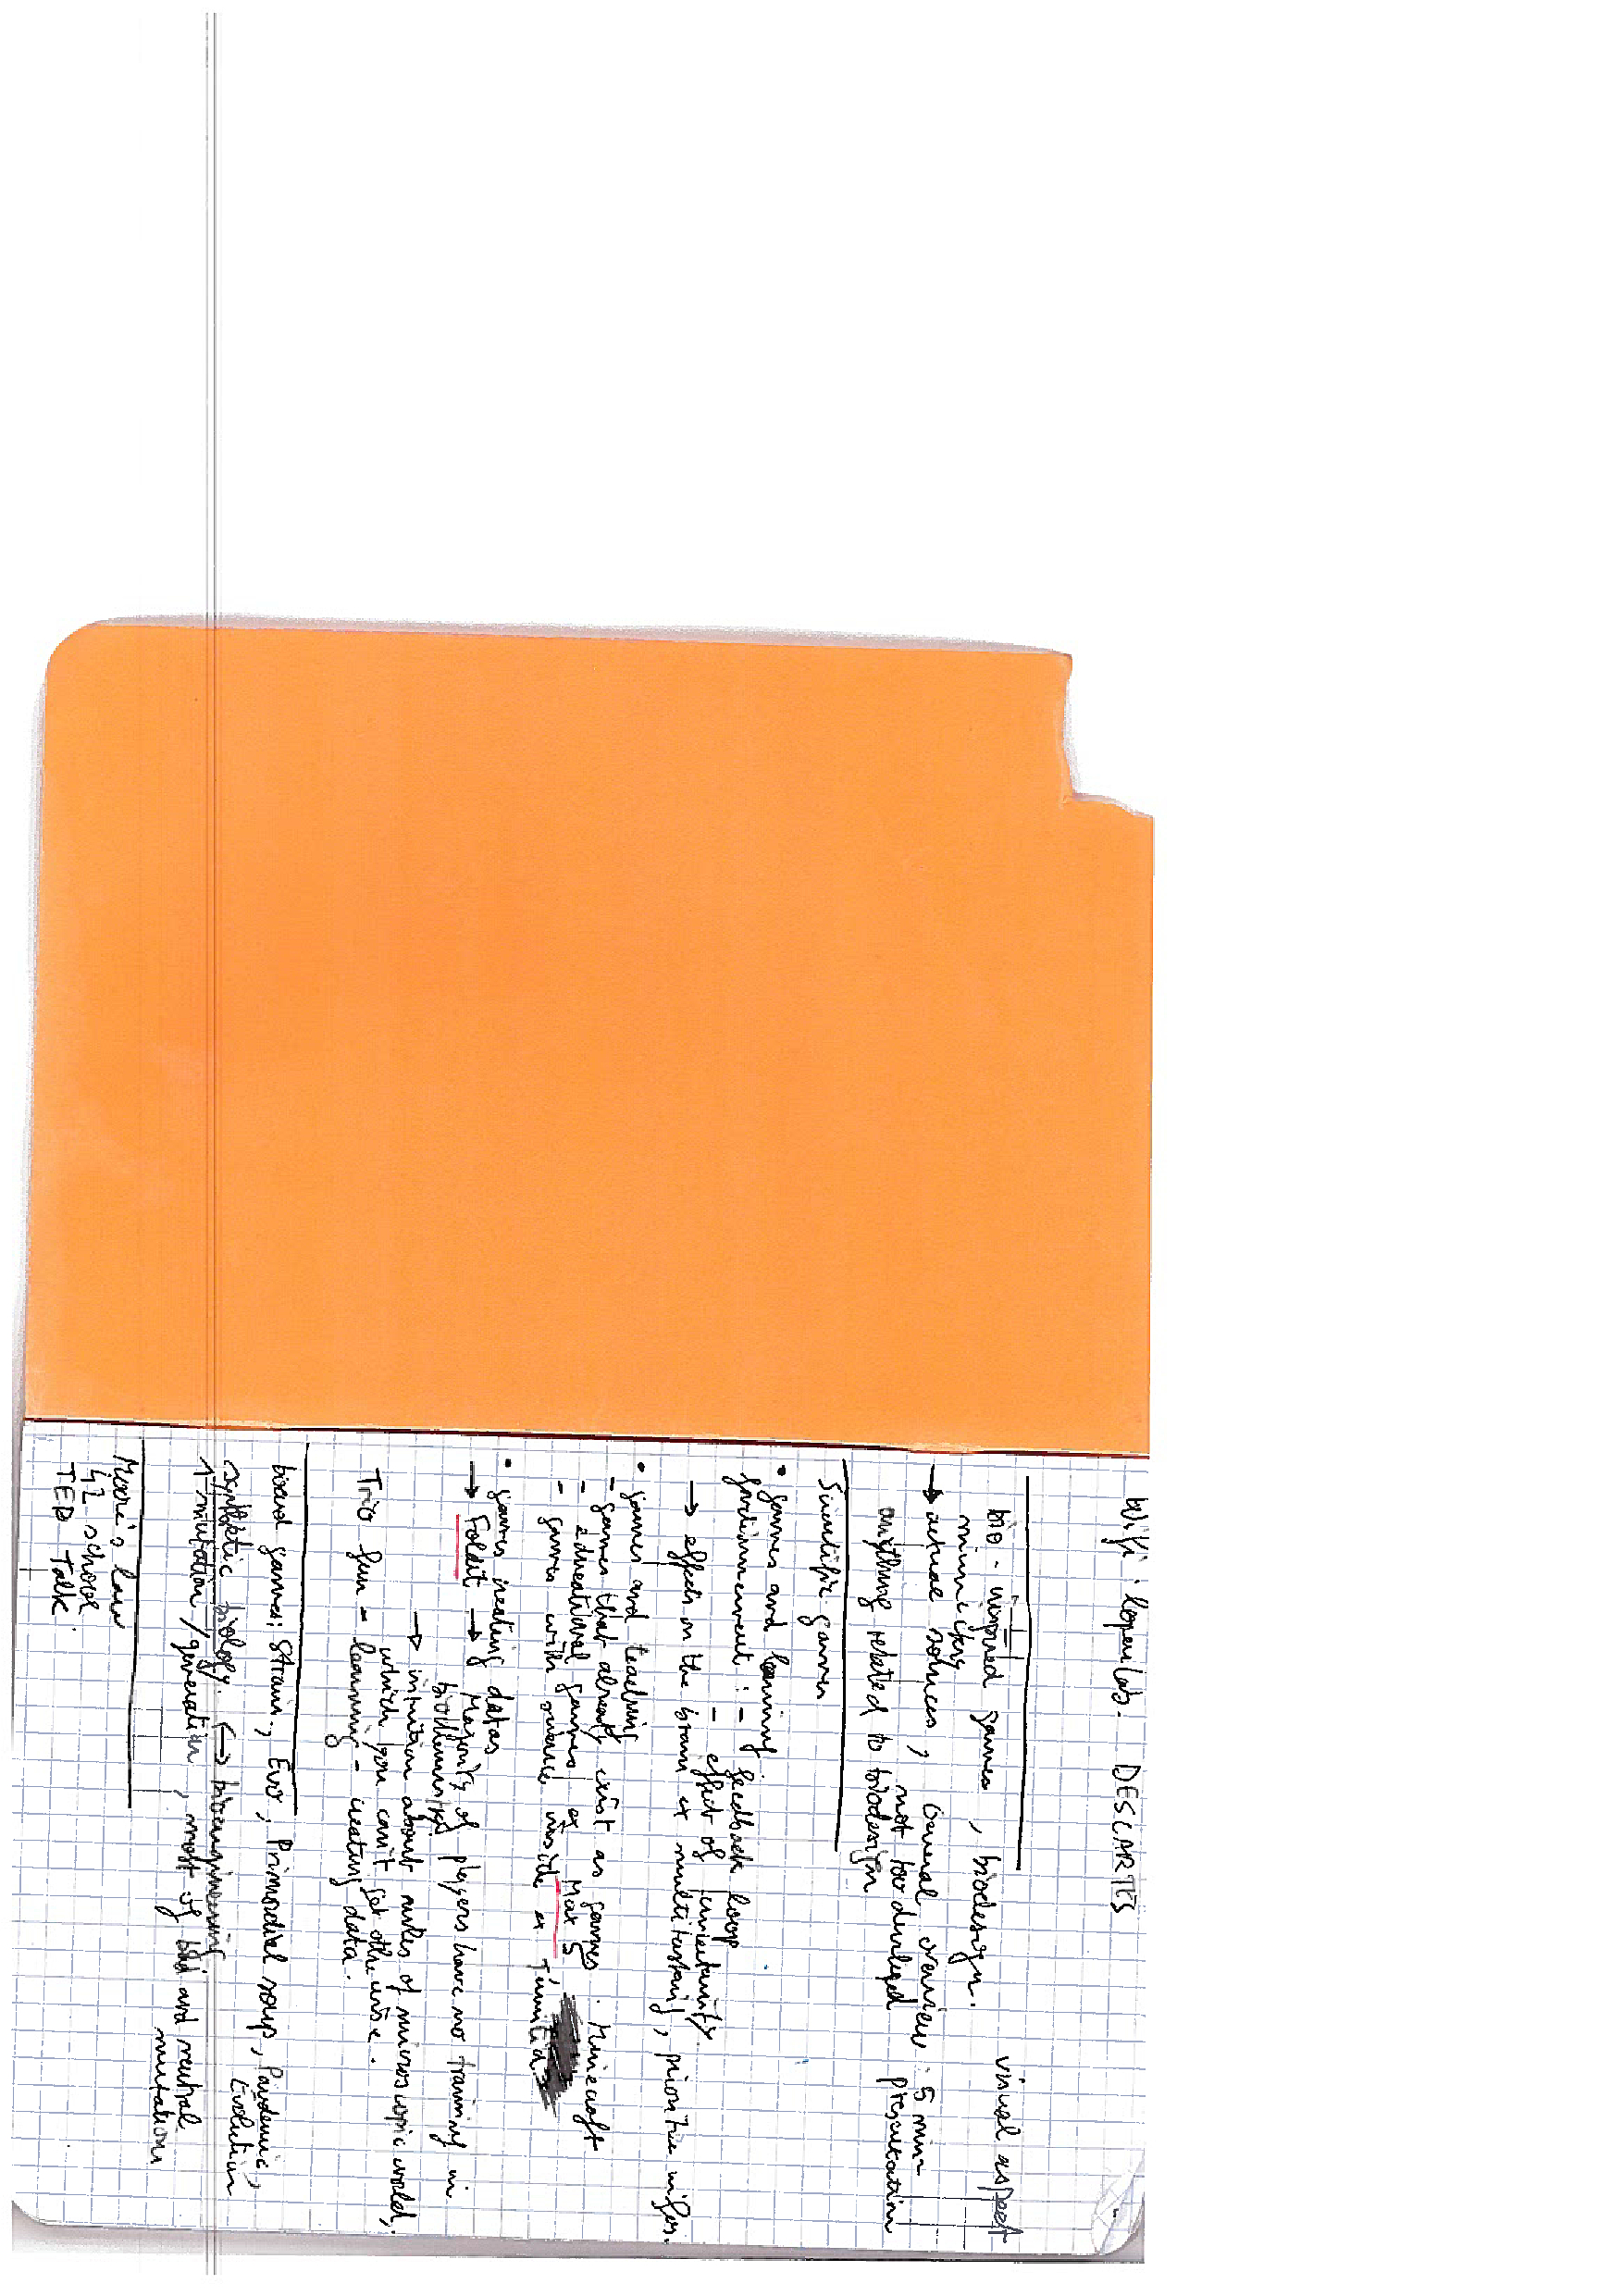 Wifi: lopenlab. DESCARTES
visual aspect
bio-inspired games, biodesign.
mimickry
→ actual sources, General overview: 5 min
not too divulged presentation
anything related to biodesign
Scientific games
• games and learning feedback loop
- effect of
→ effects on the brain ex multitasking, prioritize infos.
• games and teaching
- games that already exist as games. Minecraft
- educational games ex Max 5
- games with science inside ex
• games creating datas
→ Foldit → Majority of players have no training in biochemistry
→ intuition about rules of microscopic world,
which you can't get otherwise.
Trio fun - learning - creating data.
board games: Strain, Evo, Primordial soup, Pandemic,
Evolution
synthetic biology. ↔ bioengineering
1 mutation/generation, most of bad and neutral
mutations
Moore's law
42 school
TED Talk.